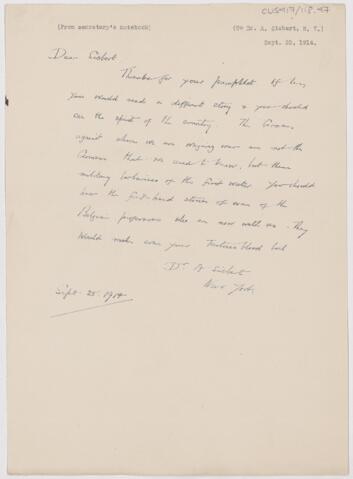 CUS417/118.47
(From secretary's notebook)
(To Dr. A. Siebert, N. Y.)
Sept. 25, 1914.
Dear Siebert
Thanks for your pamphlet
You would read a different story if you should
see the spirit of the country. The Germans
against whom we are waging war are not the
Germans that we used to know, but these
military barbarians of the first water. You should
hear the first-hand stories of some of the
Belgian professors who are now with us. They
would make even your Teutonic blood boil
Dr A Siebert
New York
Sept. 25. 1914